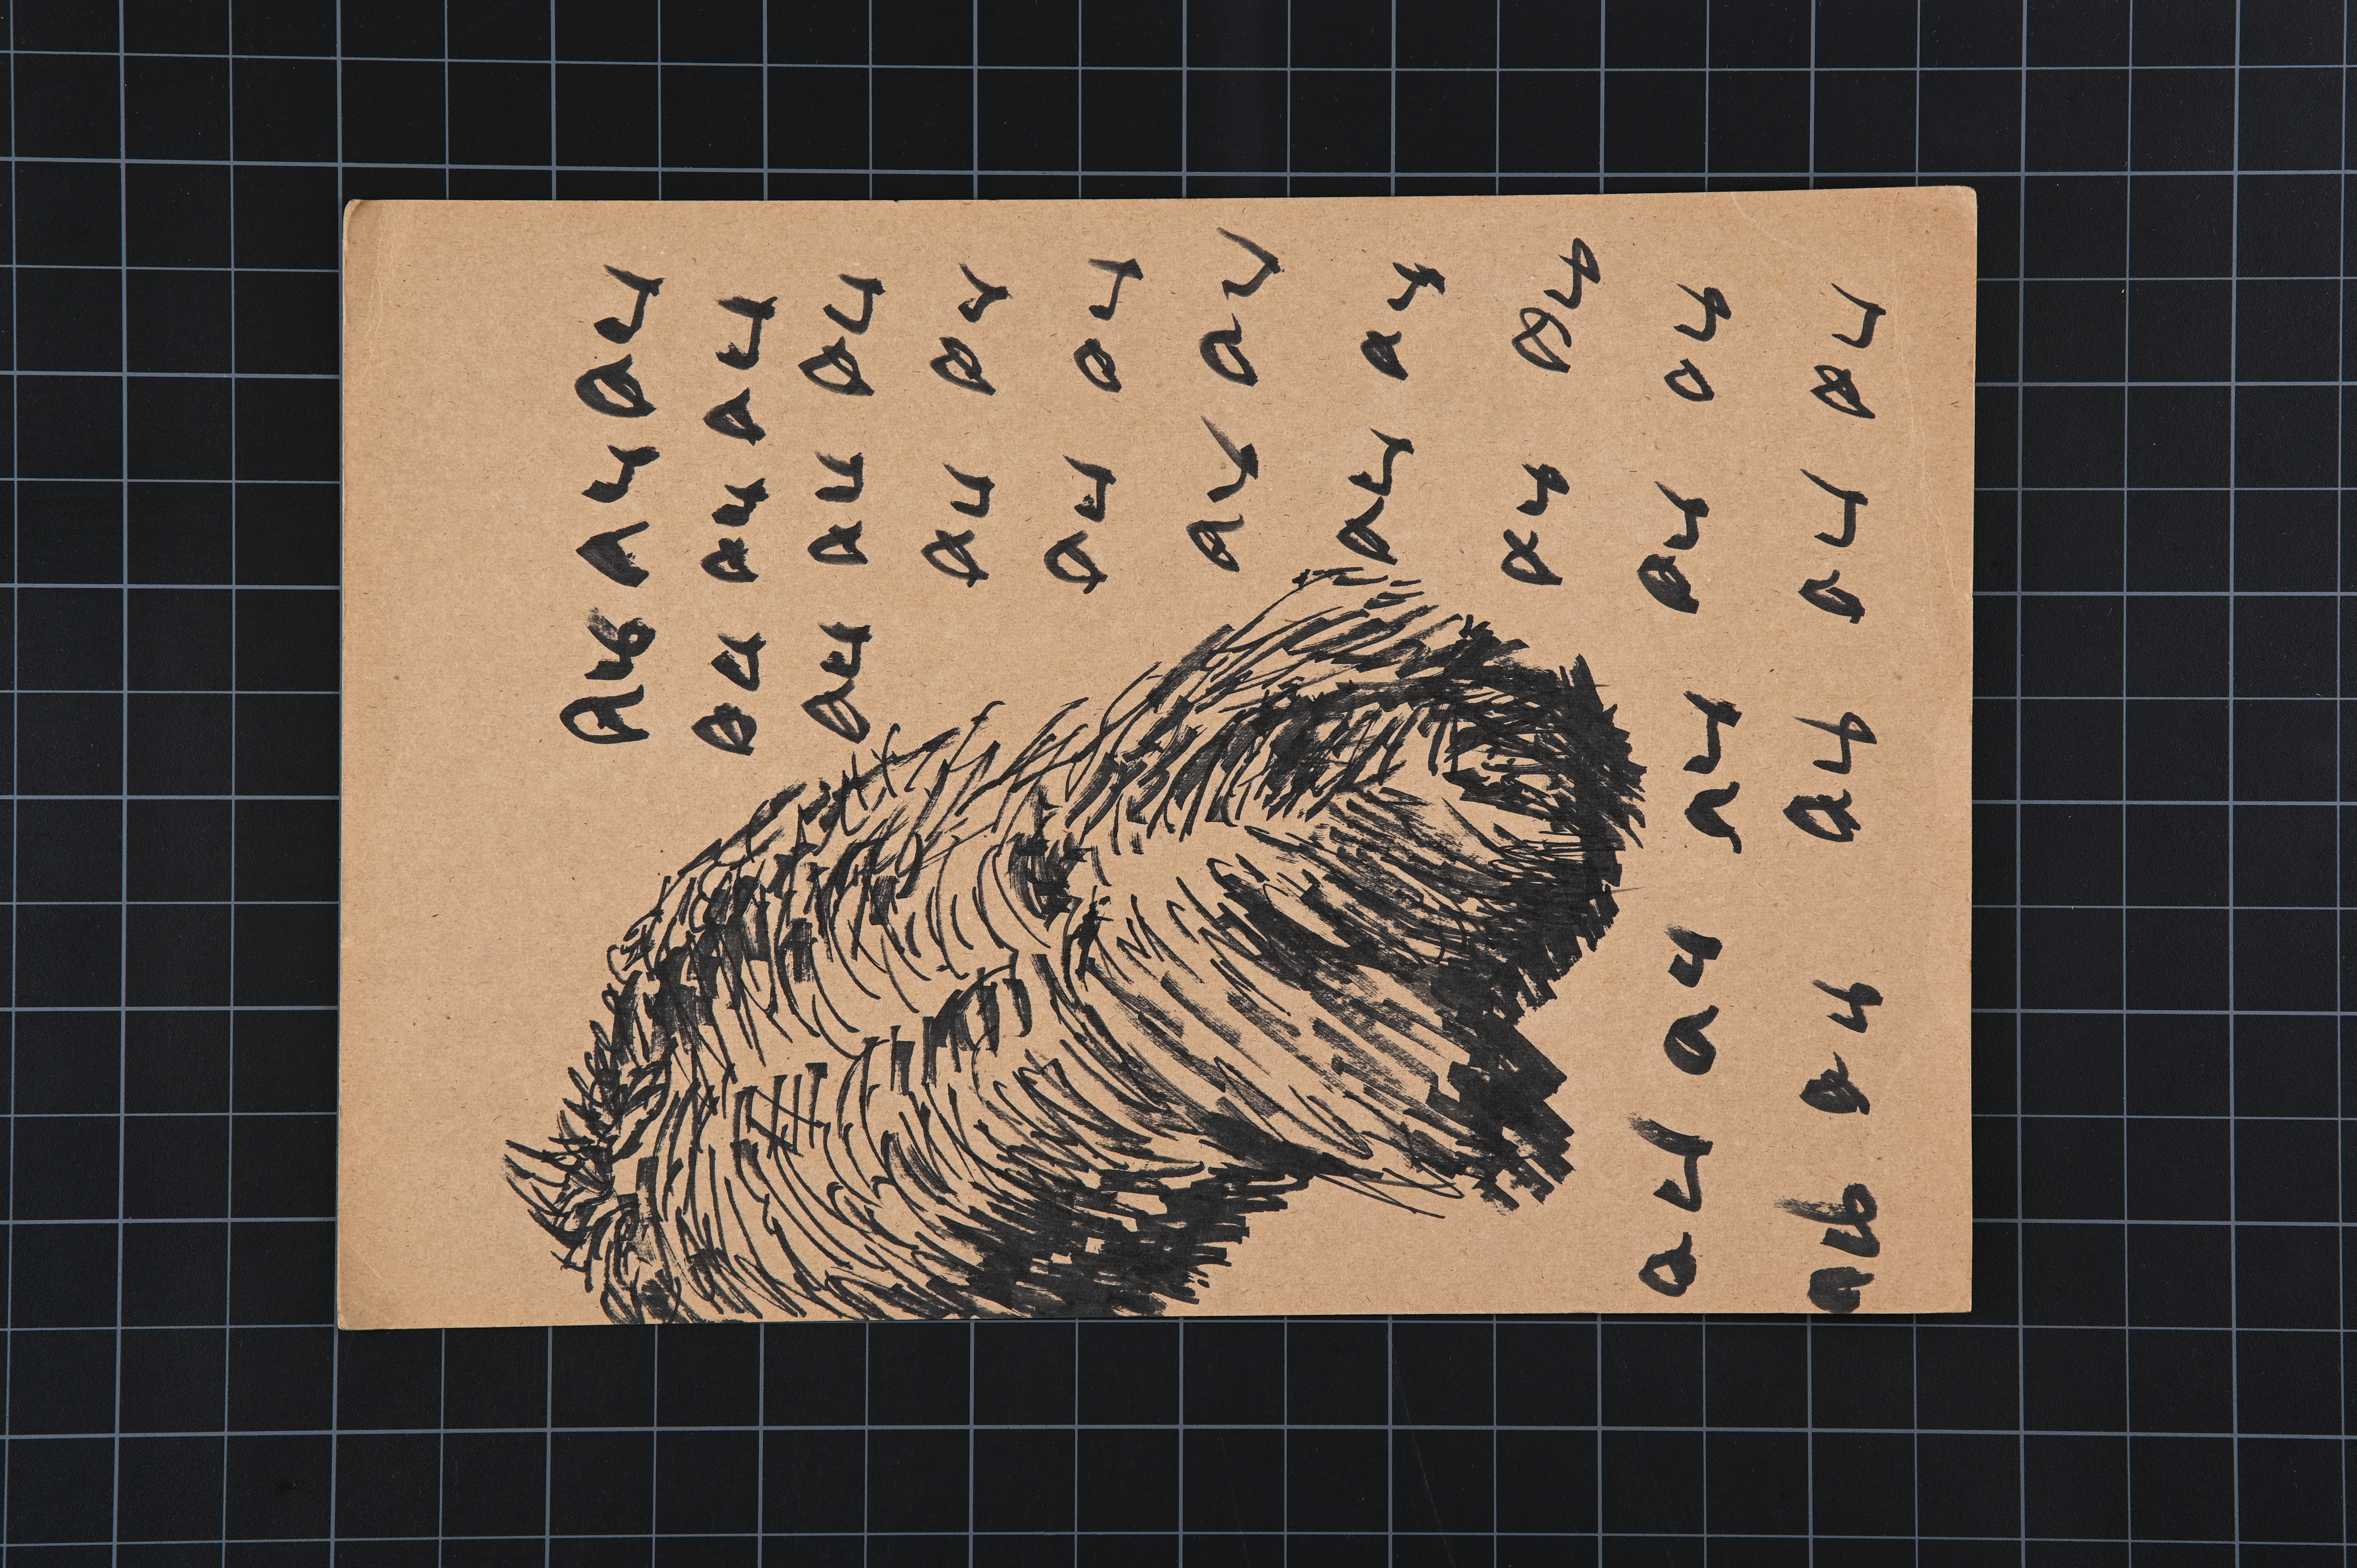 Au au au
au au au
au au au
au au
au au
au au
au au
au au
au au au au au
au au au au au